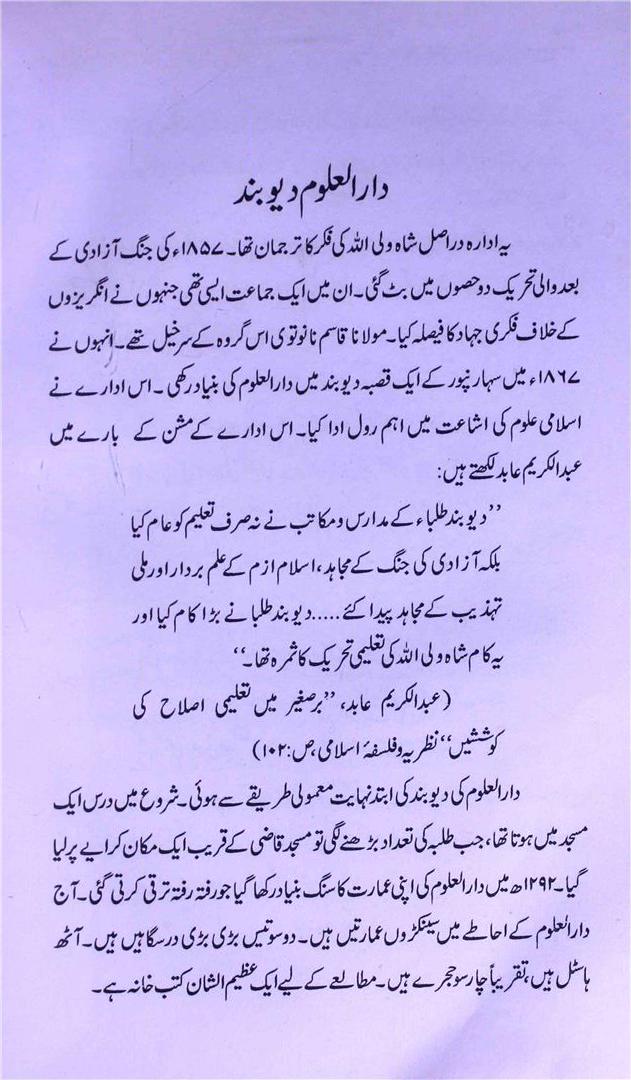 دارالعلوم دیوبند
یہ ادارہ دراصل شاہ ولی اللہ کی فکر کا ترجمان تھا۔ ۱۸۵۷ء کی جنگ آزادی کے
بعد والی تحریک دو حصوں میں بٹ گئی۔ ان میں ایک جماعت ایسی تھی جنہوں نے انگریزوں
کے خلاف فکری جہاد کا فیصلہ کیا۔ مولانا قاسم نانوتوی اس گروہ کے سرخیل تھے۔ انہوں نے
۱۸۶۷ء میں سہارنپور کے ایک قصبہ دیوبند میں دارالعلوم کی بنیاد رکھی۔ اس ادارے نے
اسلامی علوم کی اشاعت میں اہم رول ادا کیا۔ اس ادارے کے مشن کے بارے میں
عبدالکریم عابد لکھتے ہیں:
”دیوبند طلباء کے مدارس و مکاتب نے نہ صرف تعلیم کو عام کیا
بلکہ آزادی کی جنگ کے مجاہد، اسلام ازم کے علم بردار اور ملی
تہذیب کے مجاہد پیدا کئے.....دیوبند طلبا نے بڑا کام کیا اور
یہ کام شاہ ولی اللہ کی تعلیمی تحریک کا ثمرہ تھا۔“
(عبدالکریم عابد، ”برصغیر میں تعلیمی اصلاح کی
کوششیں“ نظریہ و فلسفۂ اسلامی، ص: ۱۰۲)
دارالعلوم کی دیوبند کی ابتد نہایت معمولی طریقے سے ہوئی۔ شروع میں درس ایک
مسجد میں ہوتا تھا، جب طلبہ کی تعداد بڑھنے لگی تو مسجد قاضی کے قریب ایک مکان کرایے پر لیا
گیا۔ ۱۲۹۲ھ میں دارالعلوم کی اپنی عمارت کا سنگ بنیاد رکھا گیا جو رفتہ رفتہ ترقی کرتی گئی۔ آج
دارالعلوم کے احاطے میں سینکڑوں عمارتیں ہیں۔ دو سوتیں بڑی بڑی درسگاہیں ہیں ہیں۔ آٹھ
ہاسٹل ہیں، تقریباً چار سو حجرے ہیں۔ مطالعے کے لیے ایک عظیم الشان کتب خانہ ہے۔